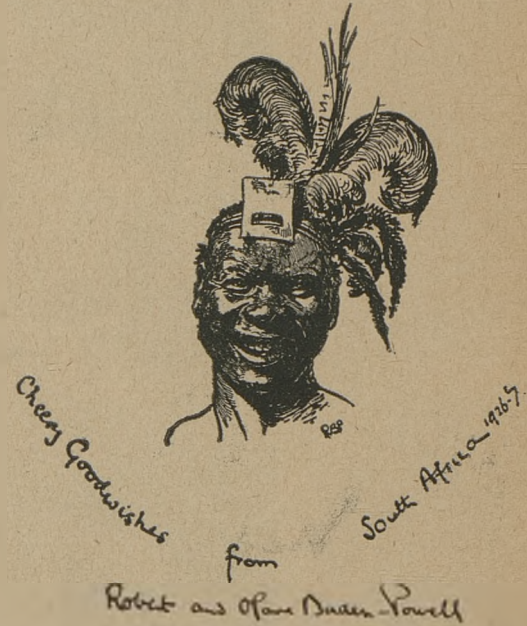 RBP
Cheery Goodwishes
from
South Africa 1926-7.
Robert and Olave Baden-Powell